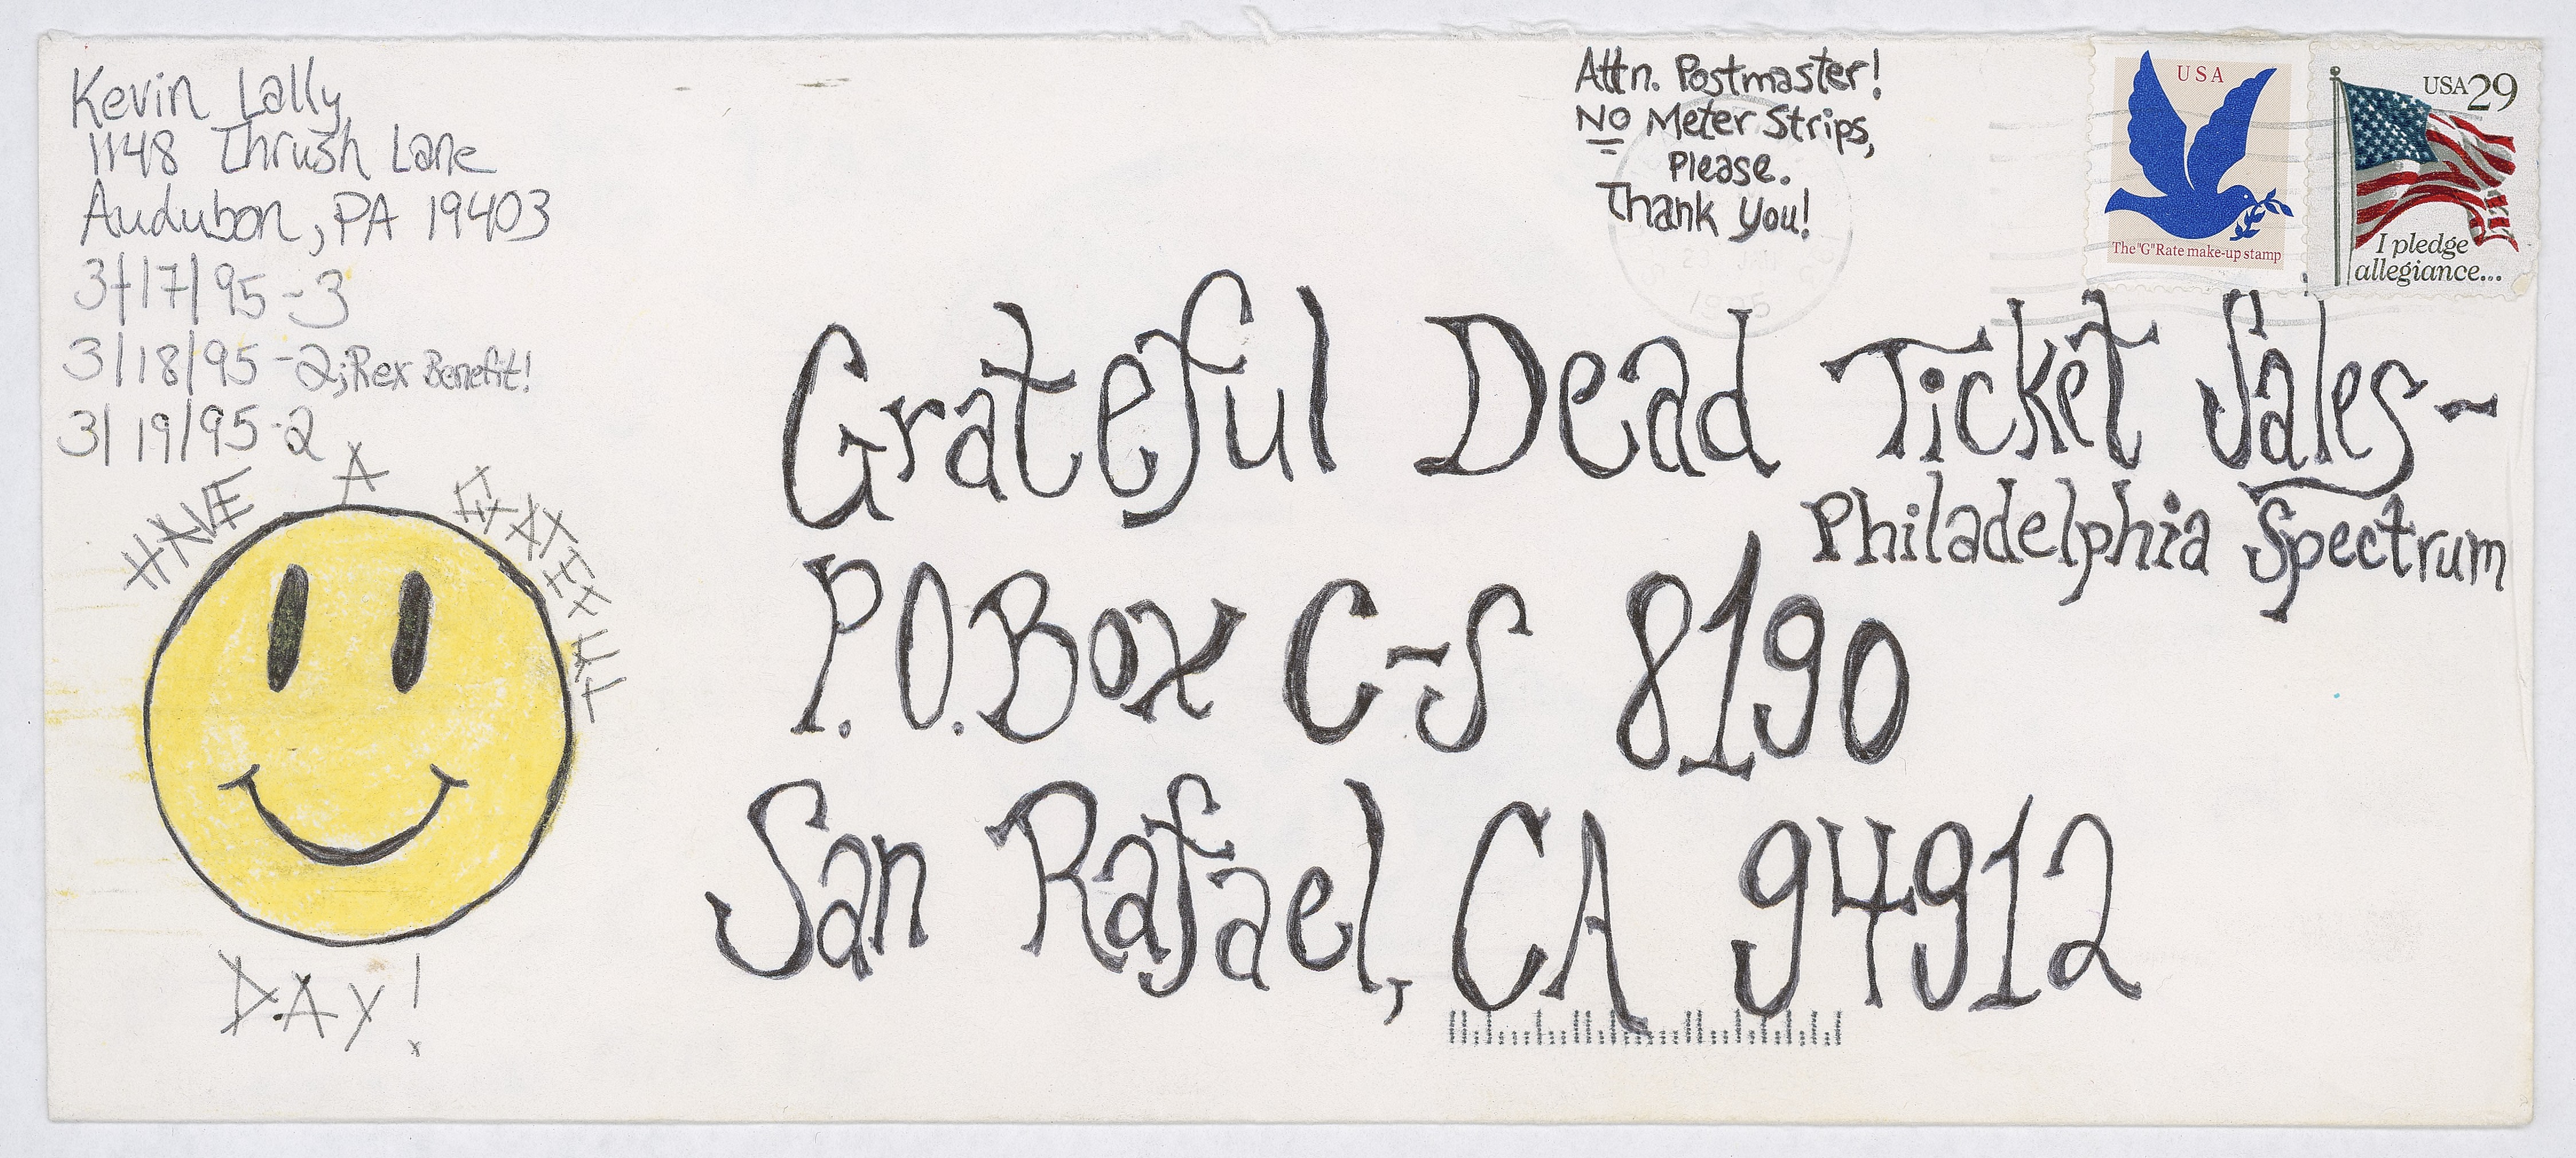 Kevin Lally
1148 Thrush Lane
Audubon, PA 19403
3/17/95-3
3/18/95-2; Rex Benefit!
3/19/95-2
HAVE A GRATEFUL
DAY!
Attn. Postmaster!
NO Meter Strips,
Please.
Thank You!
USA
The "G" Rate make-up stamp
USA 29
I pledge
allegiance...
1995
Grateful Dead Ticket Sales-
Philadelphia Spectrum
P.O. Box C-S 8190
San Rafael, CA 94912